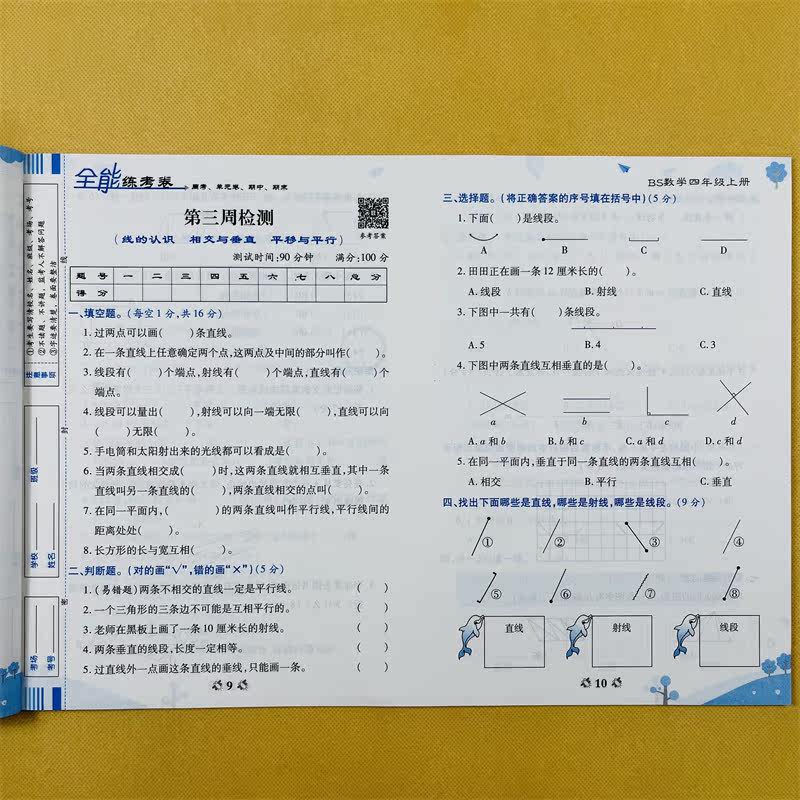 全能练考卷
周考、单元卷、期中、期末
第三周检测
(线的认识 相交与垂直 平移与平行)
参考答案
测试时间:90分钟 满分:100分
题号 一 二 三 四 五 六 七 八 总分
得分
一、填空题。(每空1分,共16分)
1.过两点可以画( )条直线。
2.在一条直线上任意确定两个点,这两点及中间的部分叫作( )。
3.线段有( )个端点,射线有( )个端点,直线有( )个
端点。
4.线段可以量出( ),射线可以向一端无限( ),直线可以向
( )无限( )。
5.手电筒和太阳射出来的光线都可以看成是( )。
6.当两条直线相交成( )时,这两条直线就相互垂直,其中一条
直线叫另一条直线的( ),两条直线相交的点叫( )。
7.在同一平面内,( )的两条直线叫作平行线,平行线间的
距离处处( )。
8.长方形的长与宽互相( )。
二、判断题。(对的画“√”,错的画“×”)(5分)
1.(易错题)两条不相交的直线一定是平行线。 ( )
2.一个三角形的三条边不可能是互相平行的。 ( )
3.老师在黑板上画了一条10厘米长的射线。 ( )
4.两条垂直的线段,长度一定相等。 ( )
5.过直线外一点画这条直线的垂线,只能画一条。 ( )
9
注意事项
①考生要写清校名、姓名、班级、考场、考号
②不读题、不讲题,监考人不解答问题
③字迹要清楚,卷面要整洁
班级
学校
姓名
考场
考号
线
封
密
BS数学四年级上册
三、选择题。(将正确答案的序号填在括号中)(5分)
1.下面( )是线段。
A B C D
2.田田正在画一条12厘米长的( )。
A.线段 B.射线 C.直线
3.下图中一共有( )条线段。
A.5 B.4 C.3
4.下图中两条直线互相垂直的是( )。
a b c d
A.a和b B.b和c C.a和d D.c和d
5.在同一平面内,垂直于同一条直线的两条直线互相( )。
A.相交 B.平行 C.垂直
四、找出下面哪些是直线,哪些是射线,哪些是线段。(9分)
① ② ③ ④
⑤ ⑥ ⑦ ⑧
直线 射线 线段
10